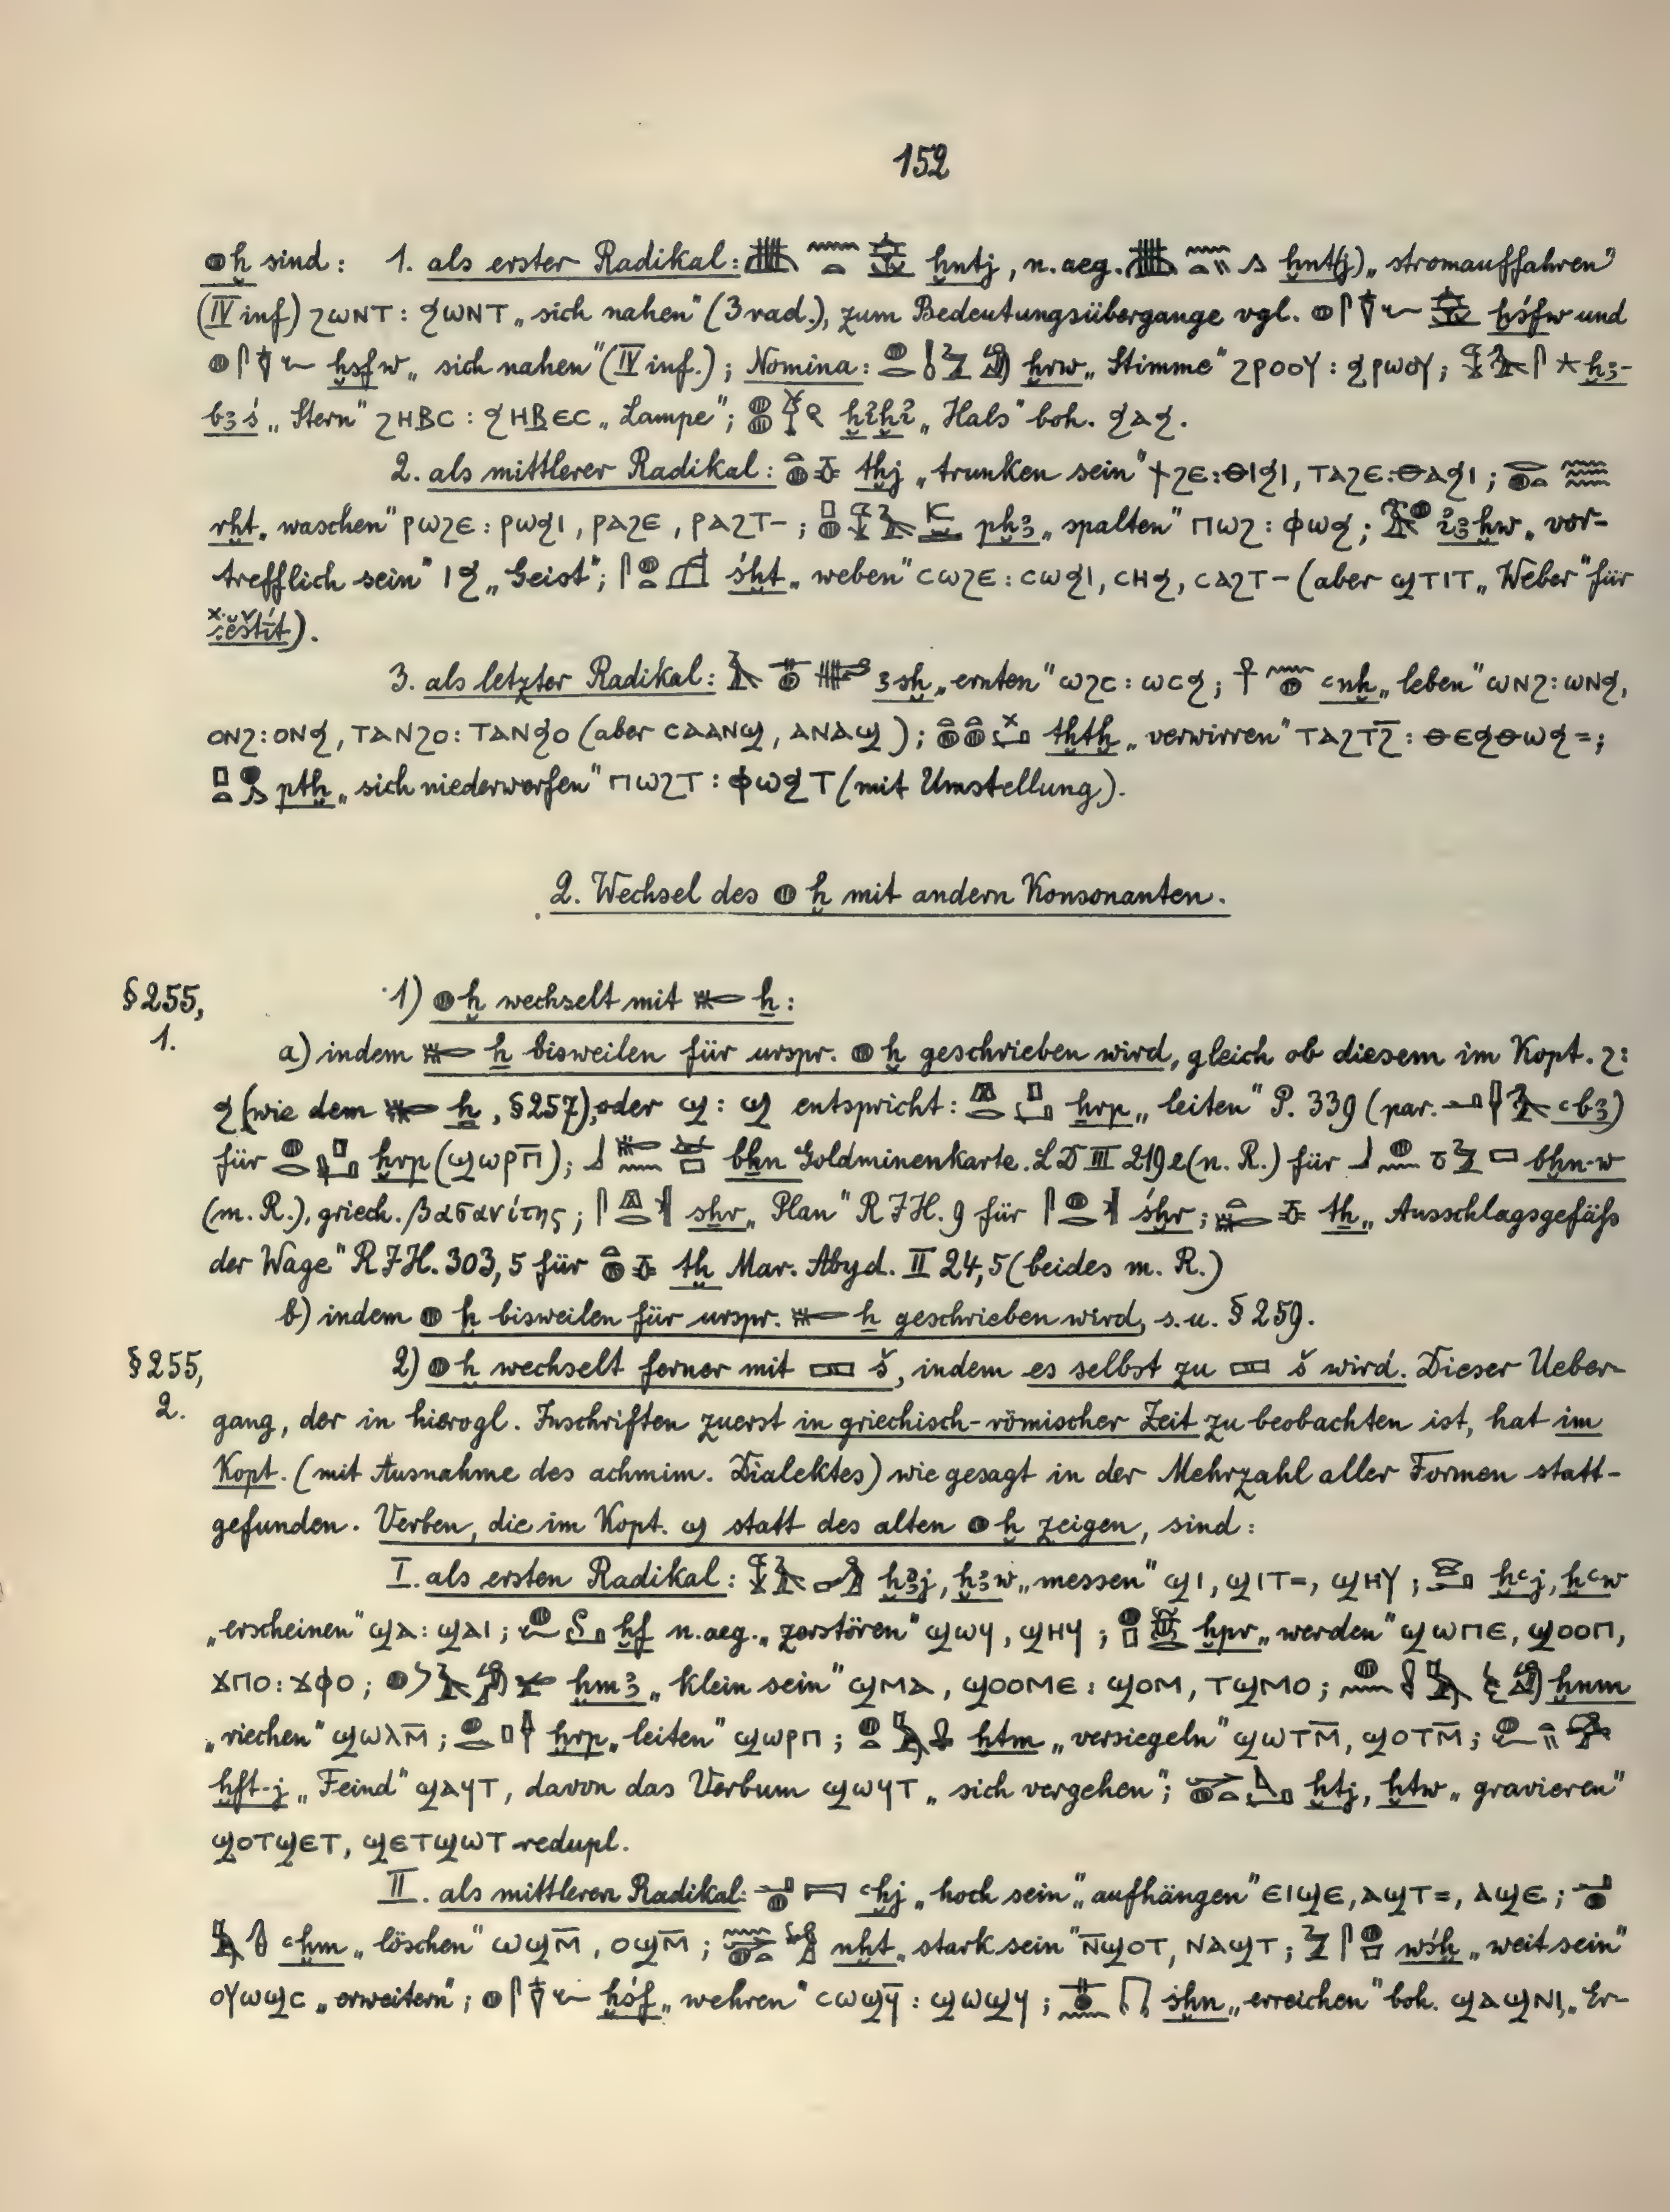 152
𓐍 ḫ sind: 1. als erster Radikal: ḫntj, n. aeg. ḫnt(j) „stromauffahren"
(IV inf) ϩⲱⲛⲧ : ϧⲱⲛⲧ „sich nahen" (3 rad.), zum Bedeutungsübergange vgl. 𓐍 ḫśfw und
ḫsfw „sich nahen" (IV inf.); Nomina: ḫrw „Stimme" ϩⲣⲟⲟⲩ : ϧⲣⲱⲟⲩ; ḫꜣ-
bꜣś „Stern" ϩⲏⲃⲥ : ϧⲏⲃⲉⲥ „Lampe"; ḫi҆ḫi҆ „Hals" boh. ϧⲁϧ.
2. als mittlerer Radikal: tḫj „trunken sein" ϯϩⲉ : ⲑⲓϧⲓ, ⲧⲁϩⲉ : ⲑⲁϧⲓ;
rḫt „waschen" ⲣⲱϩⲉ : ⲣⲱϧⲓ, ⲣⲁϩⲉ, ⲣⲁϩⲧ-; pḫꜣ „spalten" ⲡⲱϩ : ⲫⲱϧ; i҆ꜣḫw „vor-
trefflich sein" ⲓϧ „Geist"; śḫt „weben" ⲥⲱϩⲉ : ⲥⲱϧⲓ, ⲥⲏϧ, ⲥⲁϩⲧ- (aber ϣⲧⲓⲧ „Weber" für
).
3. als letzter Radikal: ꜣsḫ „ernten" ⲱϩⲥ : ⲱⲥϧ; 𓋹 ꜥnḫ „leben" ⲱⲛϩ : ⲱⲛϧ,
ⲟⲛϩ : ⲟⲛϧ, ⲧⲁⲛϩⲟ : ⲧⲁⲛϧⲟ (aber ⲥⲁⲁⲛϣ, ⲁⲛⲁϣ); tḫtḫ „verwirren" ⲧⲁϩⲧϩ̅ : ⲑⲉϧⲑⲱϧ=;
ptḫ „sich niederwerfen" ⲡⲱϩⲧ : ⲫⲱϧⲧ (mit Umstellung).
2. Wechsel des 𓐍 ḫ mit andern Konsonanten.
§ 255, 1. 1) 𓐍 ḫ wechselt mit 𓄡 ẖ:
a) indem 𓄡 ẖ bisweilen für urspr. 𓐍 ḫ geschrieben wird, gleich ob diesem im Kopt. ϩ:
ϧ (wie dem 𓄡 ẖ, § 257), oder ϣ : ϣ entspricht: ḫrp „leiten" P. 339 (par. ꜥbꜣ)
für ḫrp (ϣⲱⲣⲡ̅); bẖn Goldminenkarte. LD III 219e (n. R.) für bḫn-w
(m. R.), griech. βασανίτης; sḫr „Plan" RJH. 9 für śḫr; tẖ „Ausschlagsgefäß
der Wage" RJH. 303, 5 für tḫ Mar. Abyd. II 24, 5 (beides m. R.)
b) indem 𓐍 ḫ bisweilen für urspr. 𓄡 ẖ geschrieben wird, s. u. § 259.
§ 255, 2. 2) 𓐍 ḫ wechselt ferner mit 𓈙 š, indem es selbst zu 𓈙 š wird. Dieser Ueber-
gang, der in hierogl. Inschriften zuerst in griechisch-römischer Zeit zu beobachten ist, hat im
Kopt. (mit Ausnahme des achmim. Dialektes) wie gesagt in der Mehrzahl aller Formen statt-
gefunden. Verben, die im Kopt. ϣ statt des alten 𓐍 ḫ zeigen, sind:
I. als ersten Radikal: ḫꜣj, ḫꜣw „messen" ϣⲓ, ϣⲓⲧ=, ϣⲏⲩ; ḫꜥj, ḫꜥw
„erscheinen" ϣⲁ : ϣⲁⲓ; ḫf n. aeg. „zerstören" ϣⲱϥ, ϣⲏϥ; ḫpr „werden" ϣⲱⲡⲉ, ϣⲟⲟⲡ,
ϫⲡⲟ : ϫⲫⲟ; ḫmꜣ „klein sein" ϣⲙⲁ, ϣⲟⲟⲙⲉ : ϣⲟⲙ, ⲧϣⲙⲟ; ḫnm
„riechen" ϣⲱⲗⲙ̅; ḫrp „leiten" ϣⲱⲣⲡ; ḫtm „versiegeln" ϣⲱⲧⲙ̅, ϣⲟⲧⲙ̅;
ḫft-j „Feind" ϣⲁϥⲧ, davon das Verbum ϣⲱϥⲧ „sich vergehen"; ḫtj, ḫtw „gravieren"
ϣⲟⲧϣⲉⲧ, ϣⲉⲧϣⲱⲧ redupl.
II. als mittleren Radikal: ꜥḫj „hoch sein" „aufhängen" ⲉⲓϣⲉ, ⲁϣⲧ=, ⲁϣⲉ;
ꜥḫm „löschen" ⲱϣⲙ̅, ⲟϣⲙ̅; nḫt „stark sein" ⲛ̅ϣⲟⲧ, ⲛⲁϣⲧ; wśḫ „weit sein"
ⲟⲩⲱϣⲥ „erweitern"; ḫśf „wehren" ⲥⲱϣϥ̅ : ϣⲱϣϥ; śḫn „erreichen" boh. ϣⲁϣⲛⲓ, „Er-